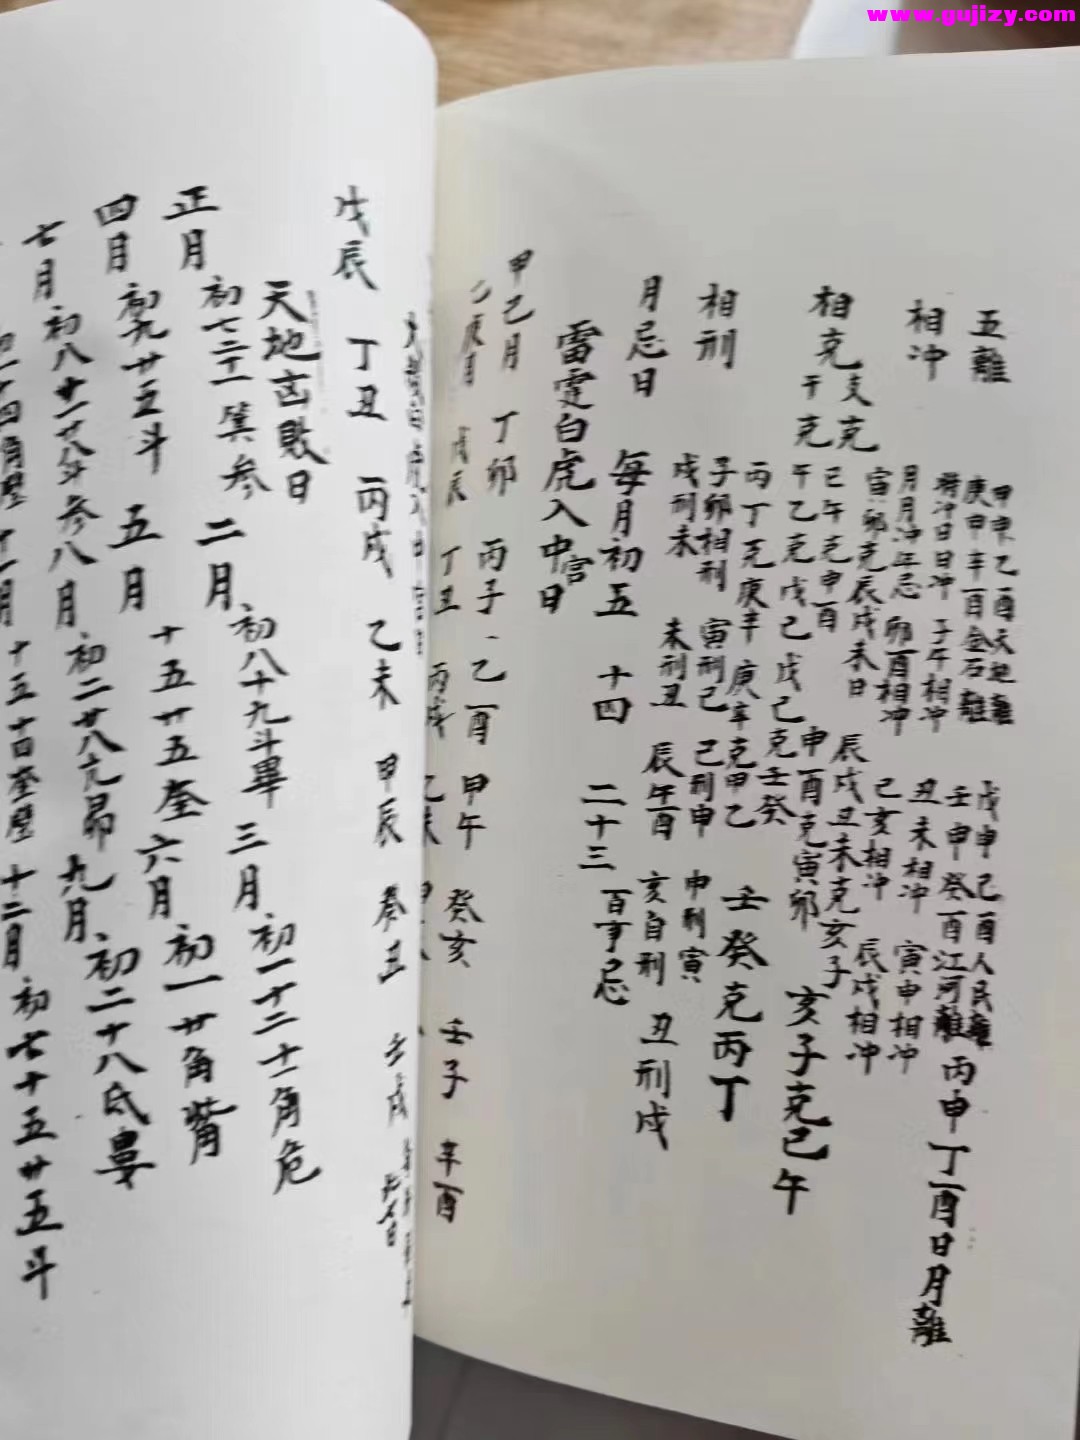 www.gujizy.com
五離
甲申乙酉天地離
庚申辛酉金石離
戊申己酉人民離
壬申癸酉江河離
丙申丁酉日月離
相冲
日日冲 子午相冲
月月冲年忌 卯酉相冲
丑未相冲 寅申相冲
己亥相冲 辰戌相冲
相克 支克
干克
寅卯克辰戌未日
辰戌丑未克亥子
己午克申酉
申酉克寅卯
亥子克己午
甲乙克戊己 戊己克壬癸
丙丁克庚辛 庚辛克甲乙
壬癸克丙丁
相刑
子卯相刑 寅刑己 己刑申 申刑寅
戌刑未 未刑丑 辰午酉 亥自刑 丑刑戌
月忌日
每月初五 十四 二十三 百事忌
雷霆白虎入中宫日
甲己月 丁卯 丙子 乙酉 甲午 癸亥 壬子 辛酉
乙庚月 戊辰 丁丑 丙戌 乙未
戊辰 丁丑 丙戌 乙未 甲辰 癸丑 壬戌
天地凶敗日
正月 初七二十一箕参 二月 初八十九斗畢 三月 初一十二十一角危
四月 初九廿五斗 五月 十五廿五奎 六月 初一廿角觜
七月 初八廿一廿八斗参 八月 初二廿八亢昴 九月 初二十八氐婁
十一月 十五十四奎壁 十二月 初七十五廿五斗